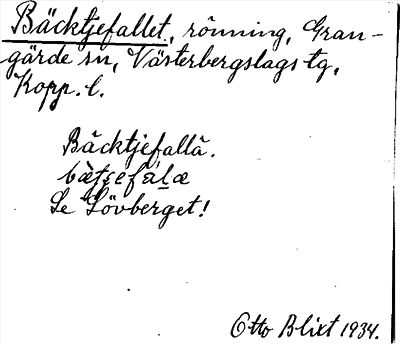 Bäcktjefallet, rönning, Gran-
gärde sn, Västerbergslags tg,
Kopp. l.
Bäcktjefallä.
Se Lövberget!
Otto Blixt 1934.